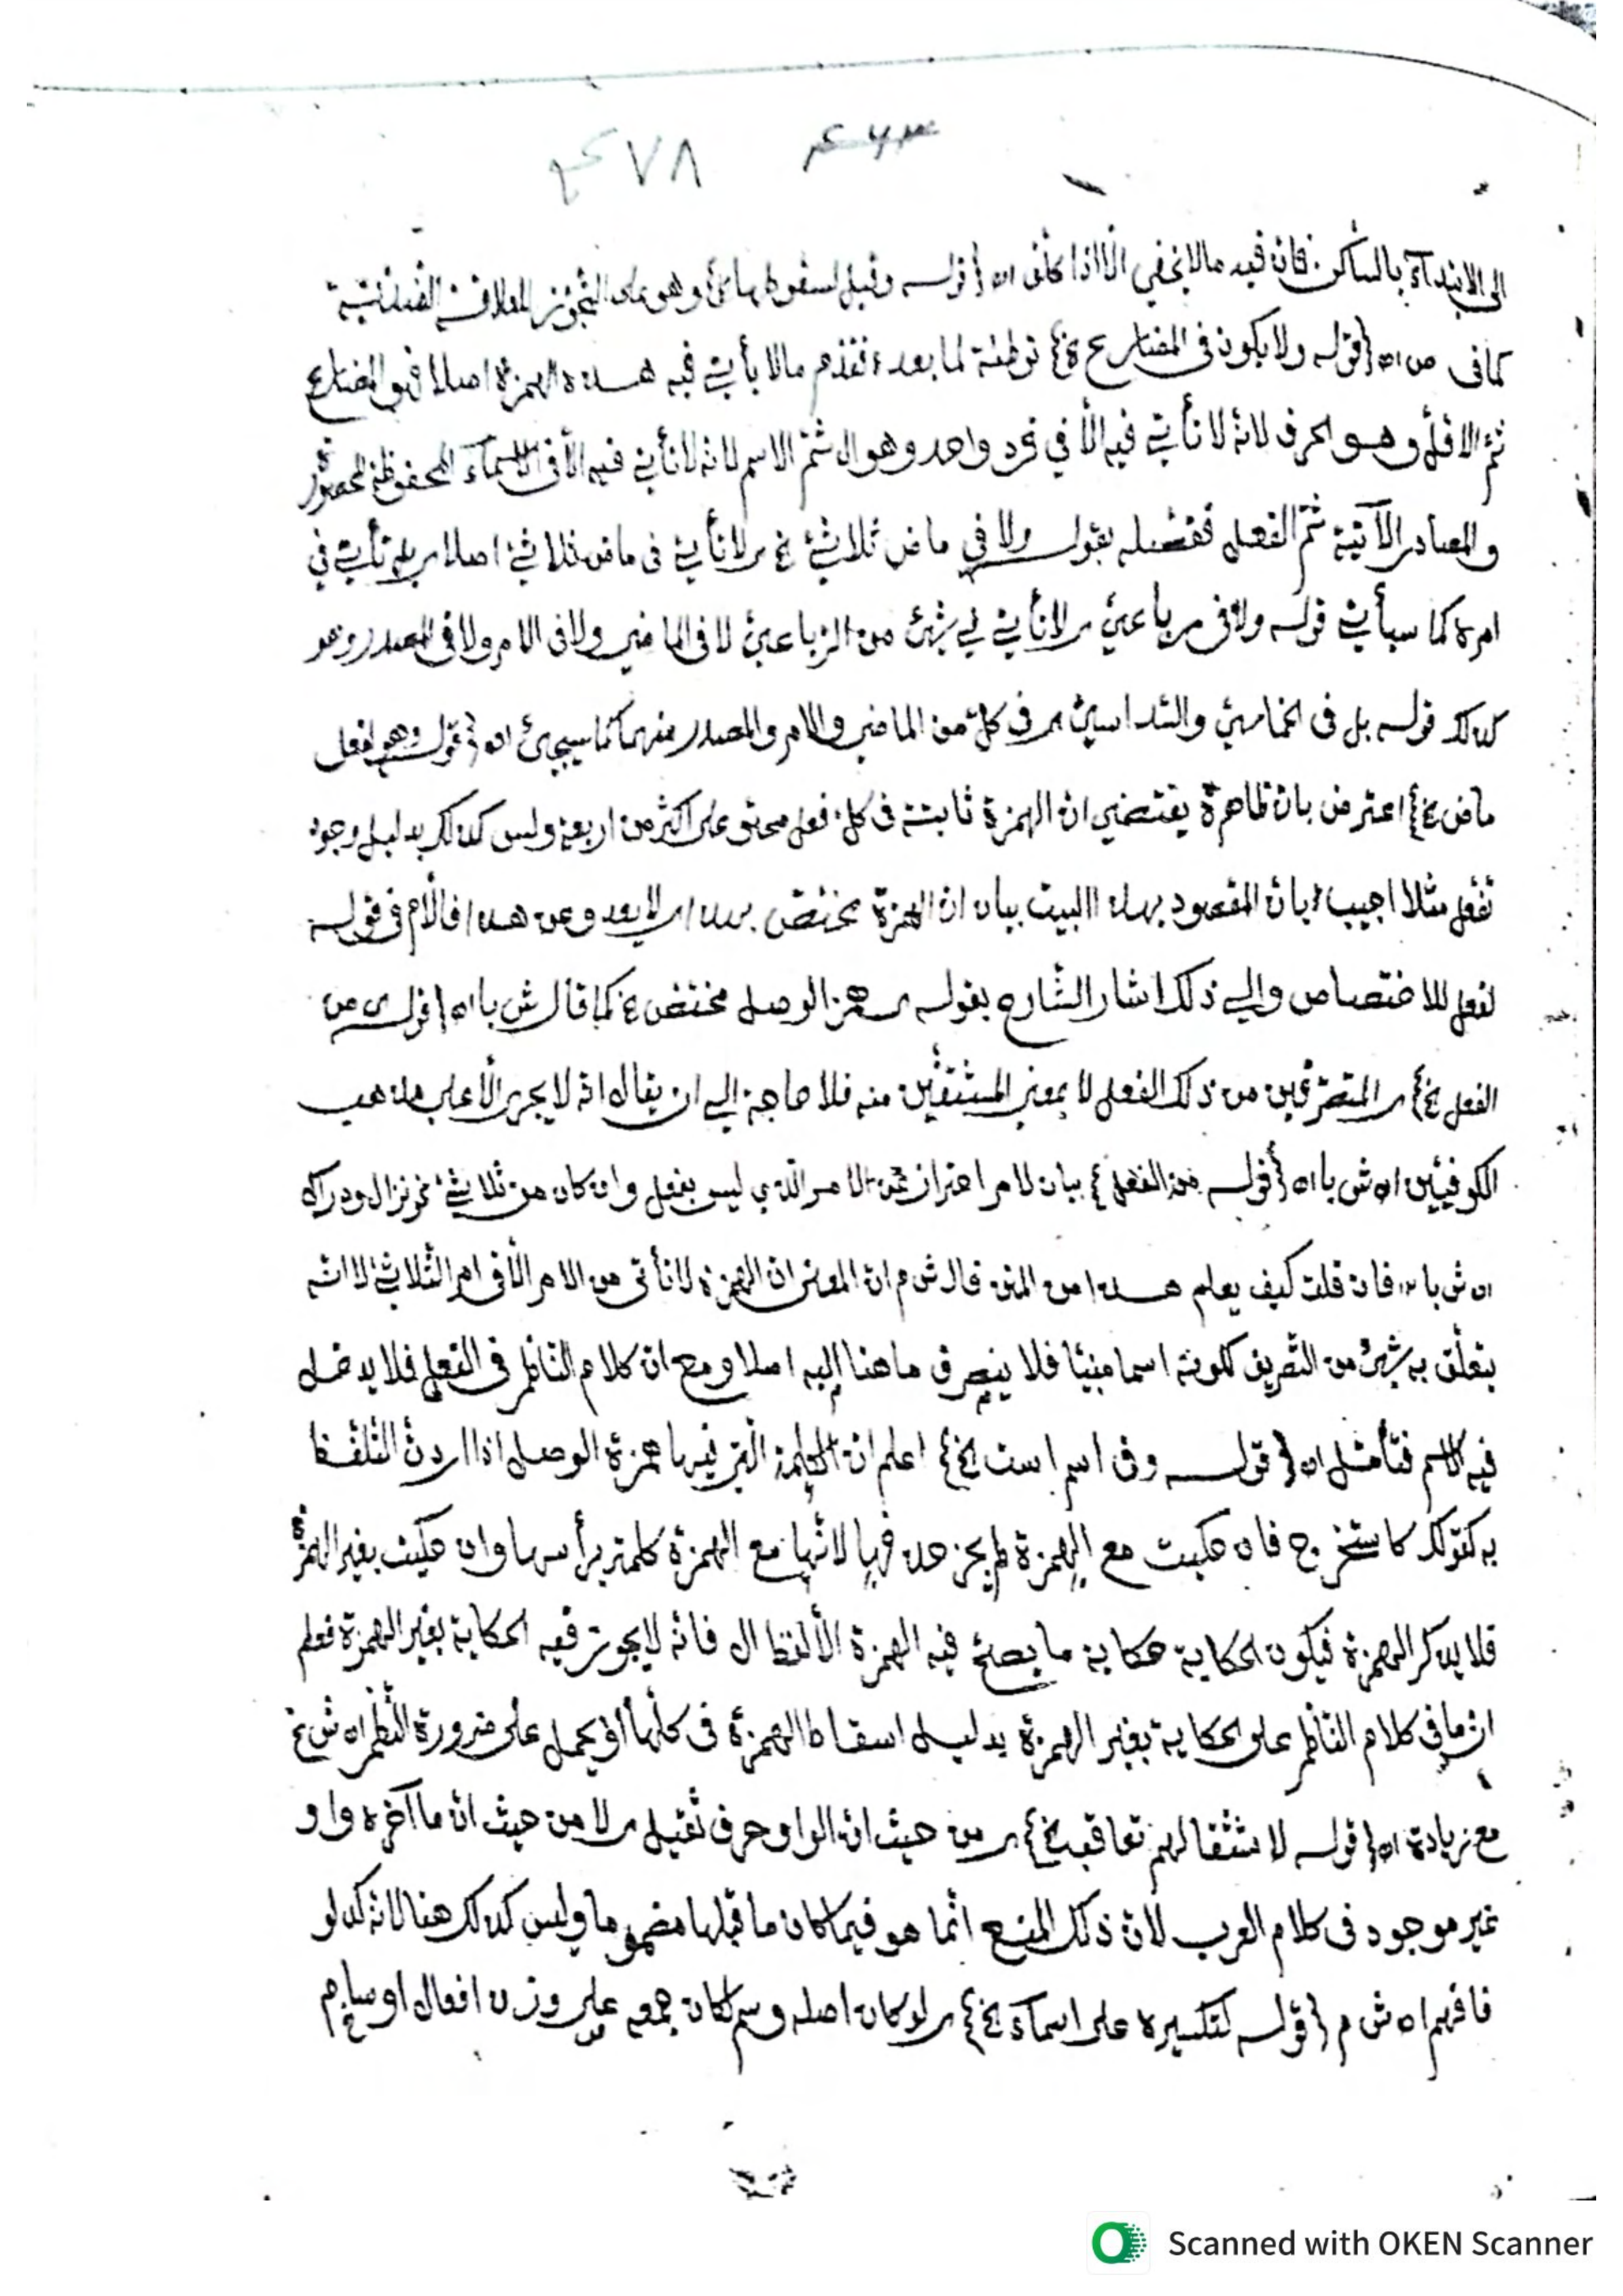 ٤٦٣ ٤٧٨
الى الابتدآء بالساكن. فان فيه مالا يخفي الّا اذا كان اه {قولـه وقيل لسقوطها غ} وهو على التجوّز للعلاقة الضدّيّة
كما في ص اه {قولـه ولا يكون في المضارع غ} توطئة لما بعده فقدّم مالا يأتي فيه هذه الهمزة اصلا فهو المضارع
ثمّ الاقلّ وهو الحرف لانّه لا تأتي فيه الّا في فرد واحد وهو ال ثمّ الاسم لانّه لا تأتي فيه الّا في الاسماء المحفوظة
والمصادر الآتية ثمّ الفعل ففصّله بقوله ولا في ماض ثلاثيّ غ ‍ لا تأتي في ماض ثلاثيّ اصلا بل تأتي في
امره كما سيأتي قولـه ولا في رباعيّ ‍ لا تأتي في شيئ من الرّباعيّ لا في الماضي ولا في الامر ولا في المصدر وهو
كذلك قولـه بل في الخماسيّ والسّداسيّ ‍ في كلّ من الماضي والامر والمصدر منهما كما سيجيئ اه {قولـه وهو لفعل
ماض غ} اعترض بان ظاهره يقتضي ان الهمزة ثابتة في كل فعل محتو على اكثر من اربعة وليس كذلك بدليل وجود
تفعّل مثلا اجيب بانّ المقصود بهذا البيت بيان ان الهمزة مختصّ بهذا ‍ لا يعدو عن هذا فالّلام في قولـه
لفعل للاختصاص والي ذلك اشار الشّارح بقولـه ‍ همز الوصل مختصّ غ كما قال ش با اه {قولـه من
الفعل غ} ‍ المتصرّفين من ذلك الفعل لا بمعنى المشتقّين منه فلا حاجة الي ان يقال انّه لا يجري الّا على مذهب
الكوفيّين اه ش با اه {قولـه من الفعل} بيان لامر احتراز عن الامر الّذي ليس بفعل وان كان من ثلاثيّ نحو نزال ودراك
اه ش با اه فان قلت كيف يعلم هذا من المتن قال ش م ان المعنى ان الهمزة لا تأتى من الامر الّا في امر الثّلاثيّ لا انّه
يتعلّق به شيئ من التّصريف لكونه اسما مبنيّا فلا ينصرف ما هنا اليه اصلا ومع ان كلام النّاظم في الفعل فلا يدخل
فيه الاسم فتأمّل اه {قولـه وفي اسم است الخ} اعلم ان الكلمة الّتي فيها همزة الوصل اذا اردتّ التّلفّظ
به كقولك كاستخرج فان حكيت مع الهمزة لم يجز حذفها لانّها مع الهمزة كلمة برأسها وان حكيت بغير الهمزة
فلا يذكر الهمزة فيكون الحكاية حكاية ما يصحّ فيه الهمزة الّا لفظ ال فانّه لا يجوز فيه الحكاية بغير الهمزة فعلم
ان ما في كلام النّاظم على الحكاية بغير الهمزة بدليل اسقاط الهمزة في كلّها او يحمل على ضرورة النّظم اه ش غ
مع زيادة اه {قولـه لاستثقالهم تعاقب الخ} ‍ من حيث انّ الواو حرف ثقيل ‍ لا من حيث انّ ما آخره واو
غير موجود في كلام العرب لانّ ذلك المنع انّما هو فيما كان ما قبلها مضموما وليس كذلك هنا لانّه كدلو
فافهم اه ش م {قولـه لتكسيره على اسمآء الخ} ‍ لو كان اصله وسم لكان جمعه على وزن افعال اوسام
Scanned with OKEN Scanner